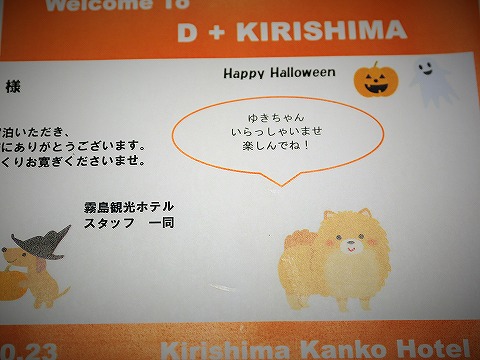 Welcome To
D + KIRISHIMA
Happy Halloween
様
泊いただき、
にありがとうございます。
くりお寛ぎくださいませ。
ゆきちゃん
いらっしゃいませ
楽しんでね！
霧島観光ホテル
スタッフ 一同
0.23
Kirishima Kanko Hotel